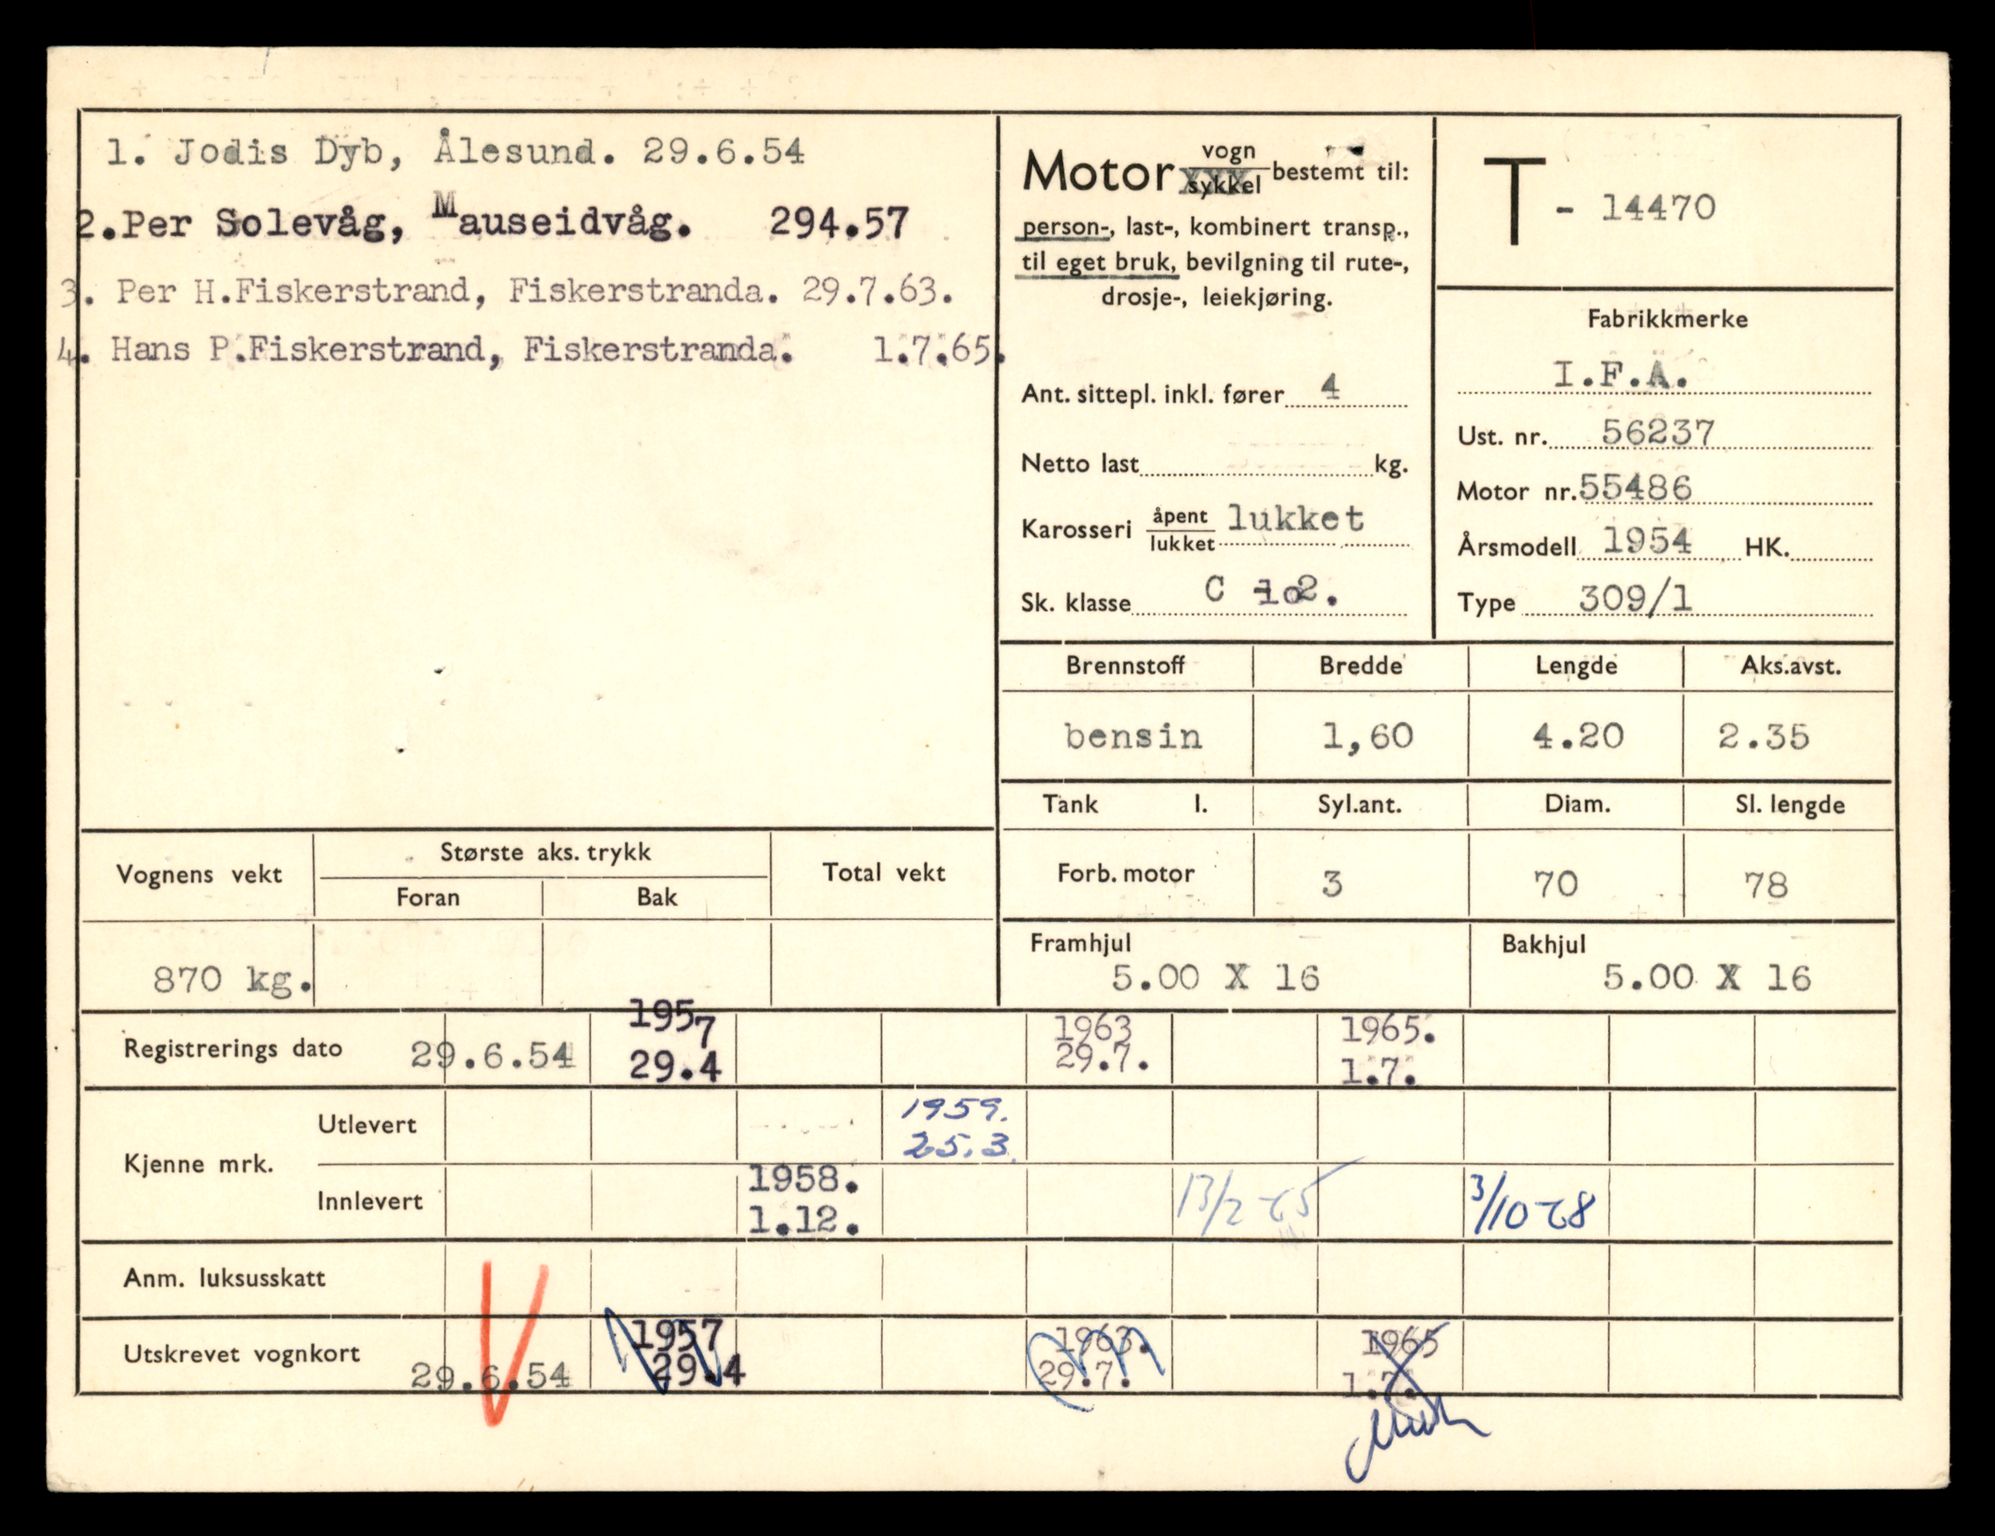 1. Jodis Dyb, Ålesund. 29.6.54
2.Per Solevåg, Mauseidvåg. 294.57
3. Per H.Fiskerstrand, Fiskerstranda. 29.7.63.
4. Hans P.Fiskerstrand, Fiskerstranda. 1.7.65.
Motor vogn
sykkel bestemt til:
person-, last-, kombinert transp.,
til eget bruk, bevilgning til rute-,
drosje-, leiekjøring.
Ant. sittepl. inkl. fører 4
Netto last kg.
Karosseri åpent
lukket lukket
Sk. klasse C 2.
T - 14470
Fabrikkmerke
I.F.A.
Ust. nr. 56237
Motor nr. 55486
Årsmodell 1954 HK.
Type 309/1
Brennstoff Bredde Lengde Aks.avst.
bensin 1,60 4.20 2.35
Tank l. Syl.ant. Diam. Sl. lengde
Forb. motor 3 70 78
Framhjul Bakhjul
5.00 X 16 5.00 X 16
Vognens vekt Største aks. trykk Total vekt
Foran Bak
870 kg.
1957 1963 1965.
Registrerings dato 29.6.54 29.4 29.7. 1.7.
1959.
Utlevert 25.3.
Kjenne mrk.
1958. 13/2-65 3/10-68
Innlevert 1.12.
Anm. luksusskatt
1957 1963. 1965
Utskrevet vognkort 29.6.54 29.4 29.7. 1.7.